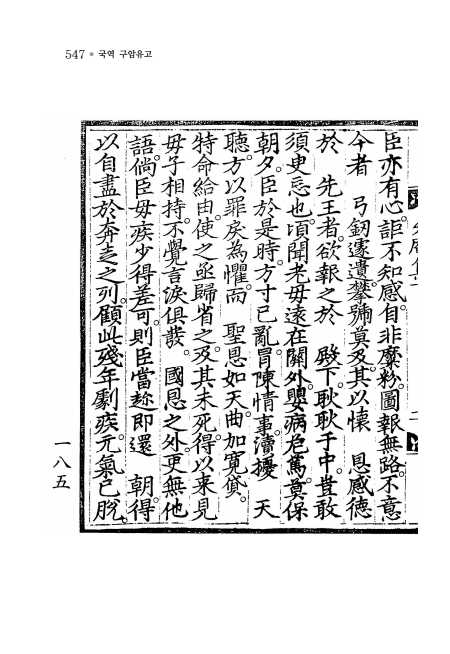 547 ● 국역 구암유고
臣亦有心。詎不知感。自非糜粉。圖報無路。不意
今者 弓劒遽遺。攀號莫及。其以懷 恩感德
於 先王者。欲報之於 殿下。耿耿于中。豈敢
須臾忘也。頃聞老母遠在關外。嬰病危篤。莫保
朝夕。臣於是時。方寸已亂。冒陳情事。瀆擾 天
聽。方以罪戾爲懼。而 聖恩如天。曲加寬貸。
特命給由。使之亟歸省之。及其未死。得以來見
母子相持。不覺言淚俱發。 國恩之外。更無他
語。倘臣母疾少得差可。則臣當趂卽還 朝。得
以自盡於奔走之列。顧此殘年劇疾。元氣已脫。
一八五